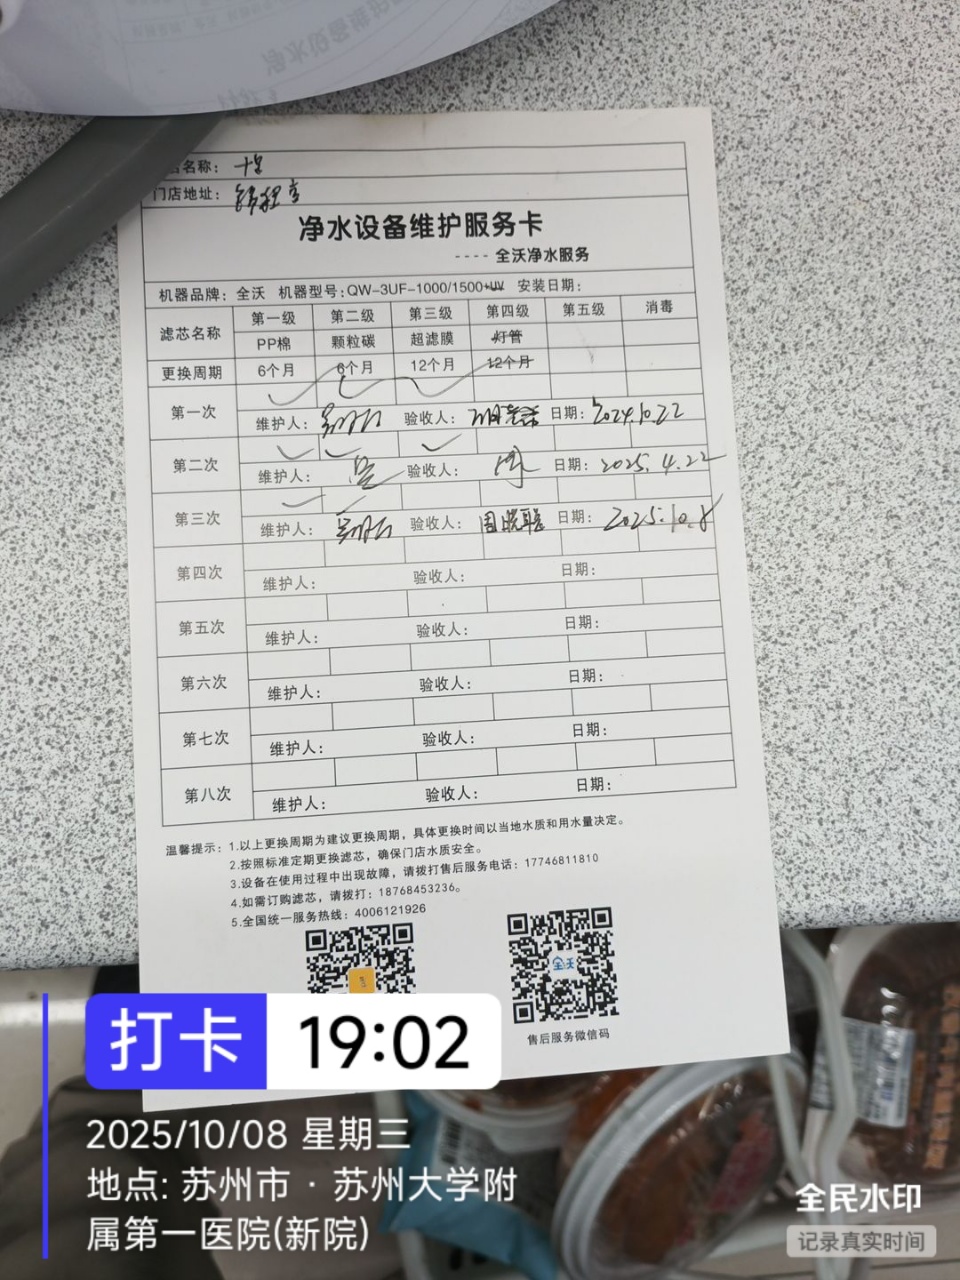 店名称：
门店地址：
净水设备维护服务卡
---- 全沃净水服务
机器品牌：全沃 机器型号：QW-3UF-1000/1500+UV 安装日期：
滤芯名称 第一级 第二级 第三级 第四级 第五级 消毒
PP棉 颗粒碳 超滤膜 灯管
更换周期 6个月 6个月 12个月 12个月
第一次
维护人： 验收人： 日期：2024.10.22
第二次
维护人：吴 验收人： 日期：2025.4.22
第三次
维护人： 验收人： 日期：2025.10.8
第四次
维护人： 验收人： 日期：
第五次
维护人： 验收人： 日期：
第六次
维护人： 验收人： 日期：
第七次
维护人： 验收人： 日期：
第八次
维护人： 验收人： 日期：
温馨提示：1.以上更换周期为建议更换周期，具体更换时间以当地水质和用水量决定。
2.按照标准定期更换滤芯，确保门店水质安全。
3.设备在使用过程中出现故障，请拨打售后服务电话：17746811810
4.如需订购滤芯，请拨打：18768453236。
5.全国统一服务热线：4006121926
全沃
售后服务微信码
打卡 19:02
2025/10/08 星期三
地点: 苏州市 · 苏州大学附
属第一医院(新院)
全民水印
记录真实时间